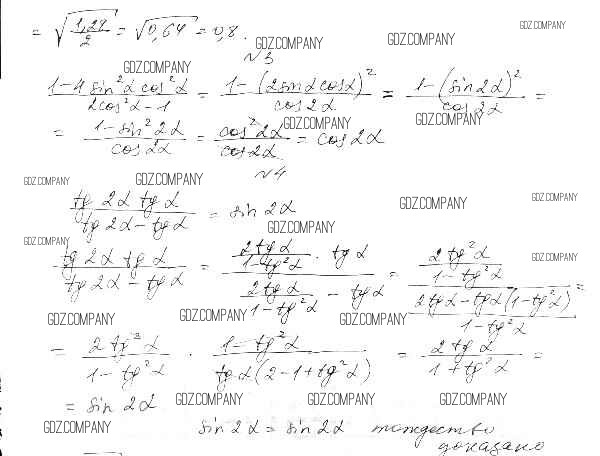 = √(1,28/2) = √0,64 = 0,8.
GDZ.COMPANY GDZ.COMPANY GDZ.COMPANY
№3
GDZ.COMPANY
(1 - 4 sin²α cos²α)/(2cos²α - 1) = (1 - (2sinα cosα)²)/(cos 2α) = (1 - (sin 2α)²)/(cos 2α) =
GDZ.COMPANY GDZ.COMPANY
= (1 - sin² 2α)/(cos 2α) = (cos² 2α)/(cos 2α) = cos 2α
№4
GDZ.COMPANY GDZ.COMPANY
(tg 2α tg α)/(tg 2α - tg α) = sin 2α
GDZ.COMPANY GDZ.COMPANY
GDZ.COMPANY GDZ.COMPANY GDZ.COMPANY
(tg 2α tg α)/(tg 2α - tg α) = ((2 tg α)/(1 - tg²α) · tg α)/((2 tg α)/(1 - tg²α) - tg α) = ((2 tg²α)/(1 - tg²α))/((2tgα - tgα(1 - tg²α))/(1 - tg²α)) =
GDZ.COMPANY GDZ.COMPANY GDZ.COMPANY
= (2 tg²α)/(1 - tg²α) · (1 - tg²α)/(tg α(2 - 1 + tg²α)) = (2 tg α)/(1 + tg²α) =
= sin 2α
GDZ.COMPANY GDZ.COMPANY GDZ.COMPANY
GDZ.COMPANY
sin 2α = sin 2α тождество
доказано